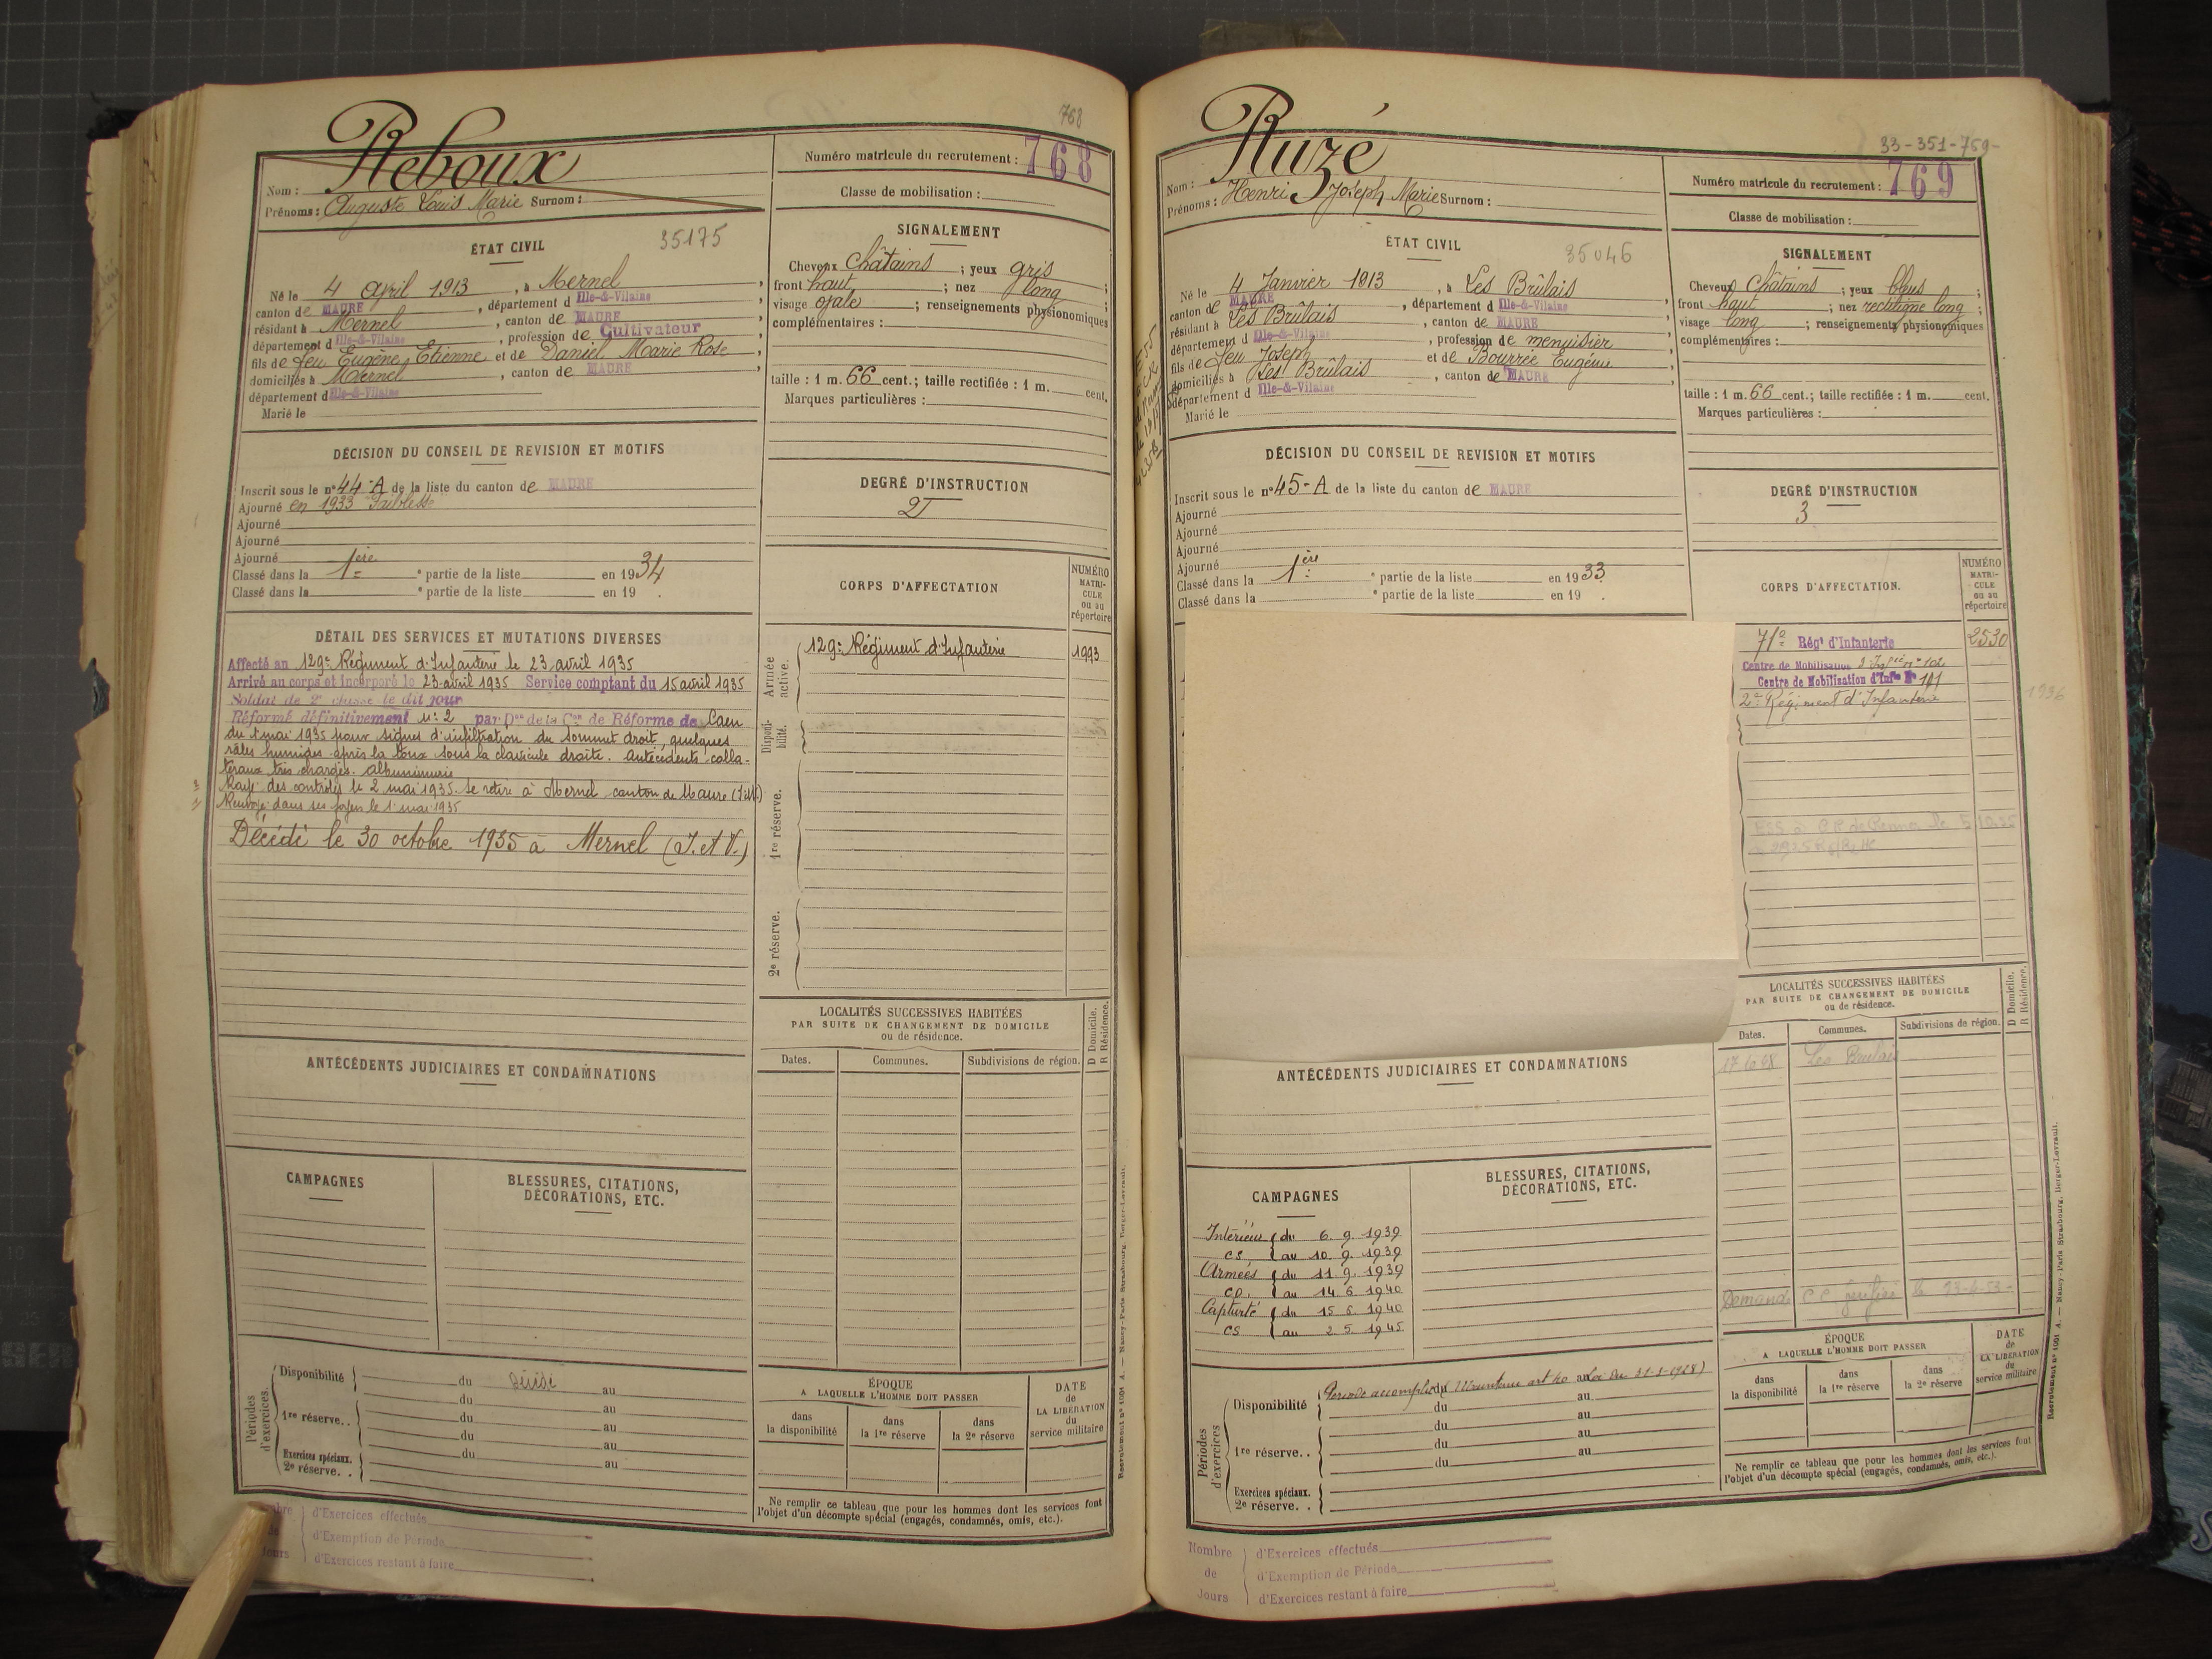 768
Reboux
Nom :
Prénoms : Auguste Louis Marie Surnom :
Numéro matricule du recrutement : 768
Classe de mobilisation :
ÉTAT CIVIL
35175
Né le 4 avril 1913, à Mernel,
canton de MAURE, département d Ille-&-Vilaine
résidant à Mernel, canton de MAURE
département d Ille-&-Vilaine, profession de Cultivateur
fils de feu Eugène, Etienne et de Daniel Marie Rose,
domiciliés à Mernel, canton de MAURE,
département d Ille-&-Vilaine
Marié le
SIGNALEMENT
Cheveux Châtains ; yeux gris ;
front haut ; nez long ;
visage ovale ; renseignements physionomiques
complémentaires :
taille : 1 m. 66 cent.; taille rectifiée : 1 m. cent.
Marques particulières :
DÉCISION DU CONSEIL DE REVISION ET MOTIFS
Inscrit sous le n° 44-A de la liste du canton de MAURE
Ajourné en 1933 Faiblesse
Ajourné
Ajourné
Ajourné
Classé dans la 1ère ° partie de la liste en 1934
Classé dans la ° partie de la liste en 19 .
DEGRÉ D'INSTRUCTION
CORPS D'AFFECTATION
NUMÉRO MATRI-CULE ou au répertoire
DÉTAIL DES SERVICES ET MUTATIONS DIVERSES
Affecté au 129e Régiment d'Infanterie le 23 avril 1935
Arrivé au corps et incorporé le 23 avril 1935 Service comptant du 15 avril 1935
Soldat de 2e classe le dit jour
Réformé définitivement n° 2 par Don de la Con de Réforme de Caen
du 1 mai 1935 pour signes d'infiltration du sommet droit, quelques
râles humides après la toux sous la clavicule droite. Antécédents colla-
téraux très chargés. Albuminurie
Rayé des contrôles le 2 mai 1935. Se retire à Mernel canton de Maure (I&V)
Renvoyé dans ses foyers le 1 mai 1935
Décédé le 30 octobre 1935 à Mernel (I. et V.)
Armée active.
129e Régiment d'Infanterie 1993
Disponi-bilité.
1re réserve.
2e réserve.
LOCALITÉS SUCCESSIVES HABITÉES
PAR SUITE DE CHANGEMENT DE DOMICILE
ou de résidence.
D Domicile.
R Résidence.
Dates. Communes. Subdivisions de région.
ANTÉCÉDENTS JUDICIAIRES ET CONDAMNATIONS
CAMPAGNES
BLESSURES, CITATIONS,
DÉCORATIONS, ETC.
Périodes d'exercices.
Disponibilité du Décédé au
du au
1re réserve.. du au
du au
Exercices spéciaux. du au
2e réserve. .
ÉPOQUE
A LAQUELLE L'HOMME DOIT PASSER
dans la disponibilité
dans la 1re réserve
dans la 2e réserve
DATE de LA LIBÉRATION du service militaire
Ne remplir ce tableau que pour les hommes dont les services font
l'objet d'un décompte spécial (engagés, condamnés, omis, etc.).
d'Exercices effectués
d'Exemption de Période
Jours d'Exercices restant à faire
Recrutement n° 1001 A. — Nancy-Paris Strasbourg, Berger-Levrault.
33-351-769-
Ruzé
Nom :
Prénoms : Henri Joseph Marie Surnom :
Numéro matricule du recrutement : 769
Classe de mobilisation :
ÉTAT CIVIL
35046
Né le 4 Janvier 1913, à Les Brûlais,
canton de MAURE, département d Ille-&-Vilaine
résidant à Les Brûlais, canton de MAURE
département d Ille-&-Vilaine, profession de menuisier
fils de feu Joseph et de Bourrée Eugénie
domiciliés à Les Brûlais, canton de MAURE,
département d Ille-&-Vilaine
Marié le
SIGNALEMENT
Cheveux Châtains ; yeux bleus ;
front haut ; nez rectiligne long ;
visage long ; renseignements physionomiques
complémentaires :
taille : 1 m. 66 cent.; taille rectifiée : 1 m. cent.
Marques particulières :
DÉCISION DU CONSEIL DE REVISION ET MOTIFS
Inscrit sous le n° 45-A de la liste du canton de MAURE
Ajourné
Ajourné
Ajourné
Ajourné
Classé dans la 1ère ° partie de la liste en 1933.
Classé dans la ° partie de la liste en 19 .
DEGRÉ D'INSTRUCTION
3
CORPS D'AFFECTATION.
NUMÉRO MATRI-CULE ou au répertoire
71e Régt d'Infanterie 2530
Centre de Mobilisation d'Infie n° 102
Centre de Mobilisation d'Infie N° 101
2e Régiment d'Infanterie
1936
LOCALITÉS SUCCESSIVES HABITÉES
PAR SUITE DE CHANGEMENT DE DOMICILE
ou de résidence.
D Domicile.
R Résidence.
Dates. Communes. Subdivisions de région.
Les Brulais
Demande
ANTÉCÉDENTS JUDICIAIRES ET CONDAMNATIONS
CAMPAGNES
BLESSURES, CITATIONS,
DÉCORATIONS, ETC.
Intérieur du 6. 9. 1939
CS au 10. 9. 1939
Armées du 11. 9. 1939
CD. au 14. 6. 1940
Capturé du 15. 6. 1940
CS au 2. 5. 1945
Périodes d'exercices
Disponibilité Période accomplie du au Loi du 31-3-1928)
du au
du au
1re réserve.. du au
du au
Exercices spéciaux.
2e réserve. .
ÉPOQUE
A LAQUELLE L'HOMME DOIT PASSER
dans la disponibilité
dans la 1re réserve
dans la 2e réserve
DATE de LA LIBÉRATION du service militaire
Ne remplir ce tableau que pour les hommes dont les services font
l'objet d'un décompte spécial (engagés, condamnés, omis, etc.).
Nombre d'Exercices effectués
de d'Exemption de Période
Jours d'Exercices restant à faire
Recrutement n° 1001 A. — Nancy-Paris Strasbourg, Berger-Levrault.